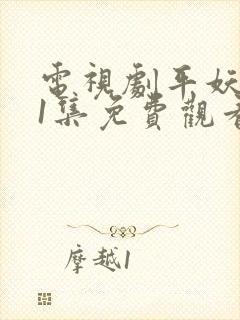 電視劇平妖
1集免費觀看
摩越1